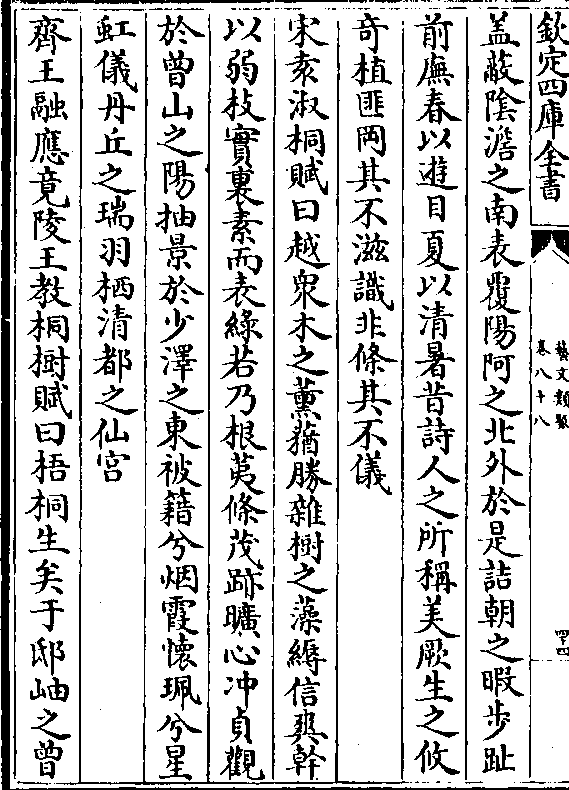 欽定四庫全書
藝文類聚
卷八十八
四十四
盖蔽陰澹之南表覆陽阿之北外於是詰朝之暇步趾
前廡春以遊目夏以清暑昔詩人之所稱美厥生之攸
奇植匪岡其不滋識非條其不儀
宋袁淑桐賦曰越衆木之薰蕕勝雜樹之藻縟信爽幹
以弱枝實裏素而表緑若乃根荑條茂跡曠心冲貞觀
於曾山之陽抽景於少澤之東被籍兮烟霞懐珮兮星
虹儀丹丘之瑞羽栖清都之仙宫
齊王融應竟陵王教桐樹賦曰梧桐生矣于邸岫之曾